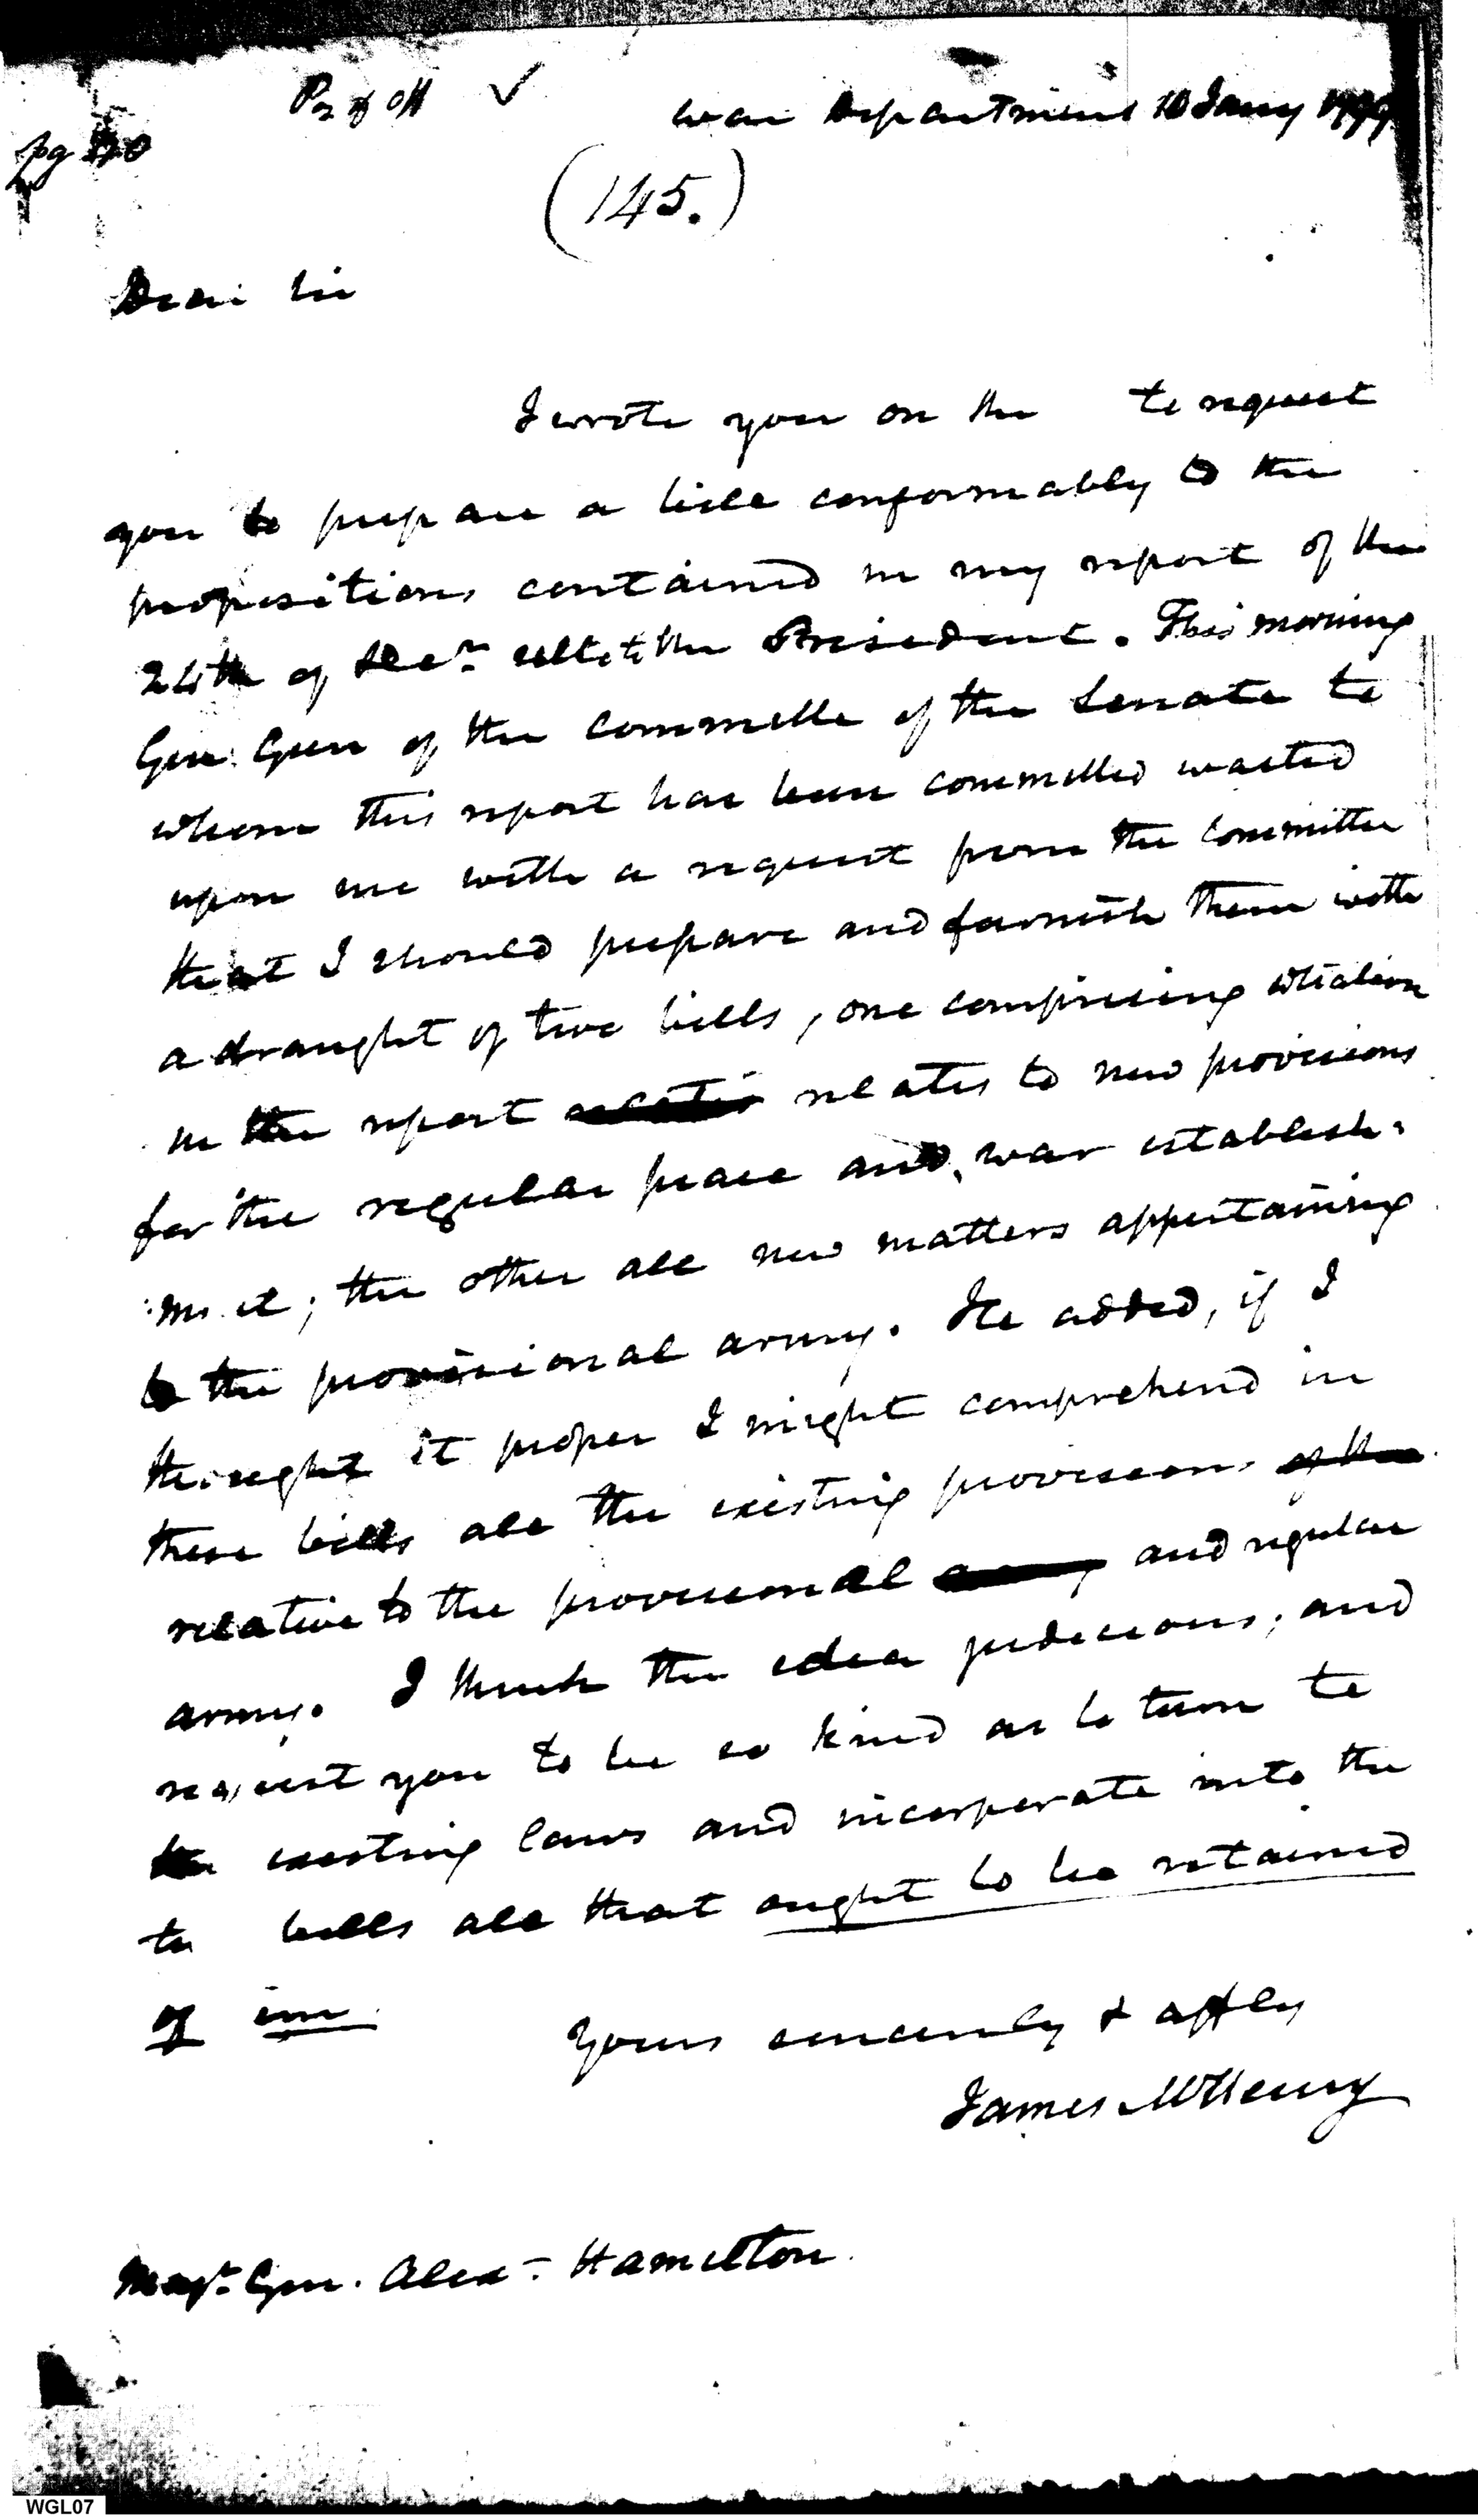 P. of H ✓
War Department 10 Jany 1799
pg
(145.)
Dear Sir
I wrote you on the to request
you to prepare a bill conformably to the
propositions contained in my report of the
24th of Decr. ult to the President. This morning
Gen. Gun of the committe of the Senate to
whom this report has been committed waited
upon me with a request from the Committee
that I should prepare and furnish them with
a draught of two bills, one comprising whatever
in the report relates to new provisions
for the regular peace and war establish-
ment; the other all new matters appertaining
to the provisional army. He added, if I
thought it proper I might comprehend in
these bills all the existing provisions of the
relative to the provisional army and regular
army. I think the idea judicious; and
request you to be so kind as to turn to
the existing laws and incorporate into the
bills all that ought to be retained
of
Yours sincerely & affly
James McHenry
Majr. Gen. Alexr. Hamilton.
WGL07